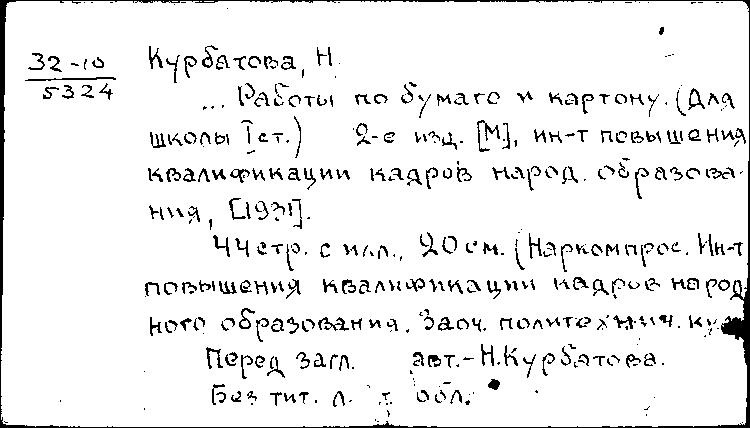 32-10
5324
Курбатова, Н.
... Работы по бумаге и картону. (Для
школы I ст.) 2-е изд. [М.], ин-т повышения
квалификации кадров народ. образова-
ния, [1931].
44 стр. с илл., 20 см. (Наркомпрос. Ин-т
повышения квалификации кадров народ-
ного образования. Заоч. политехнич.
Перед загл. авт.-Н.Курбатова.
Без тит. л. и обл.